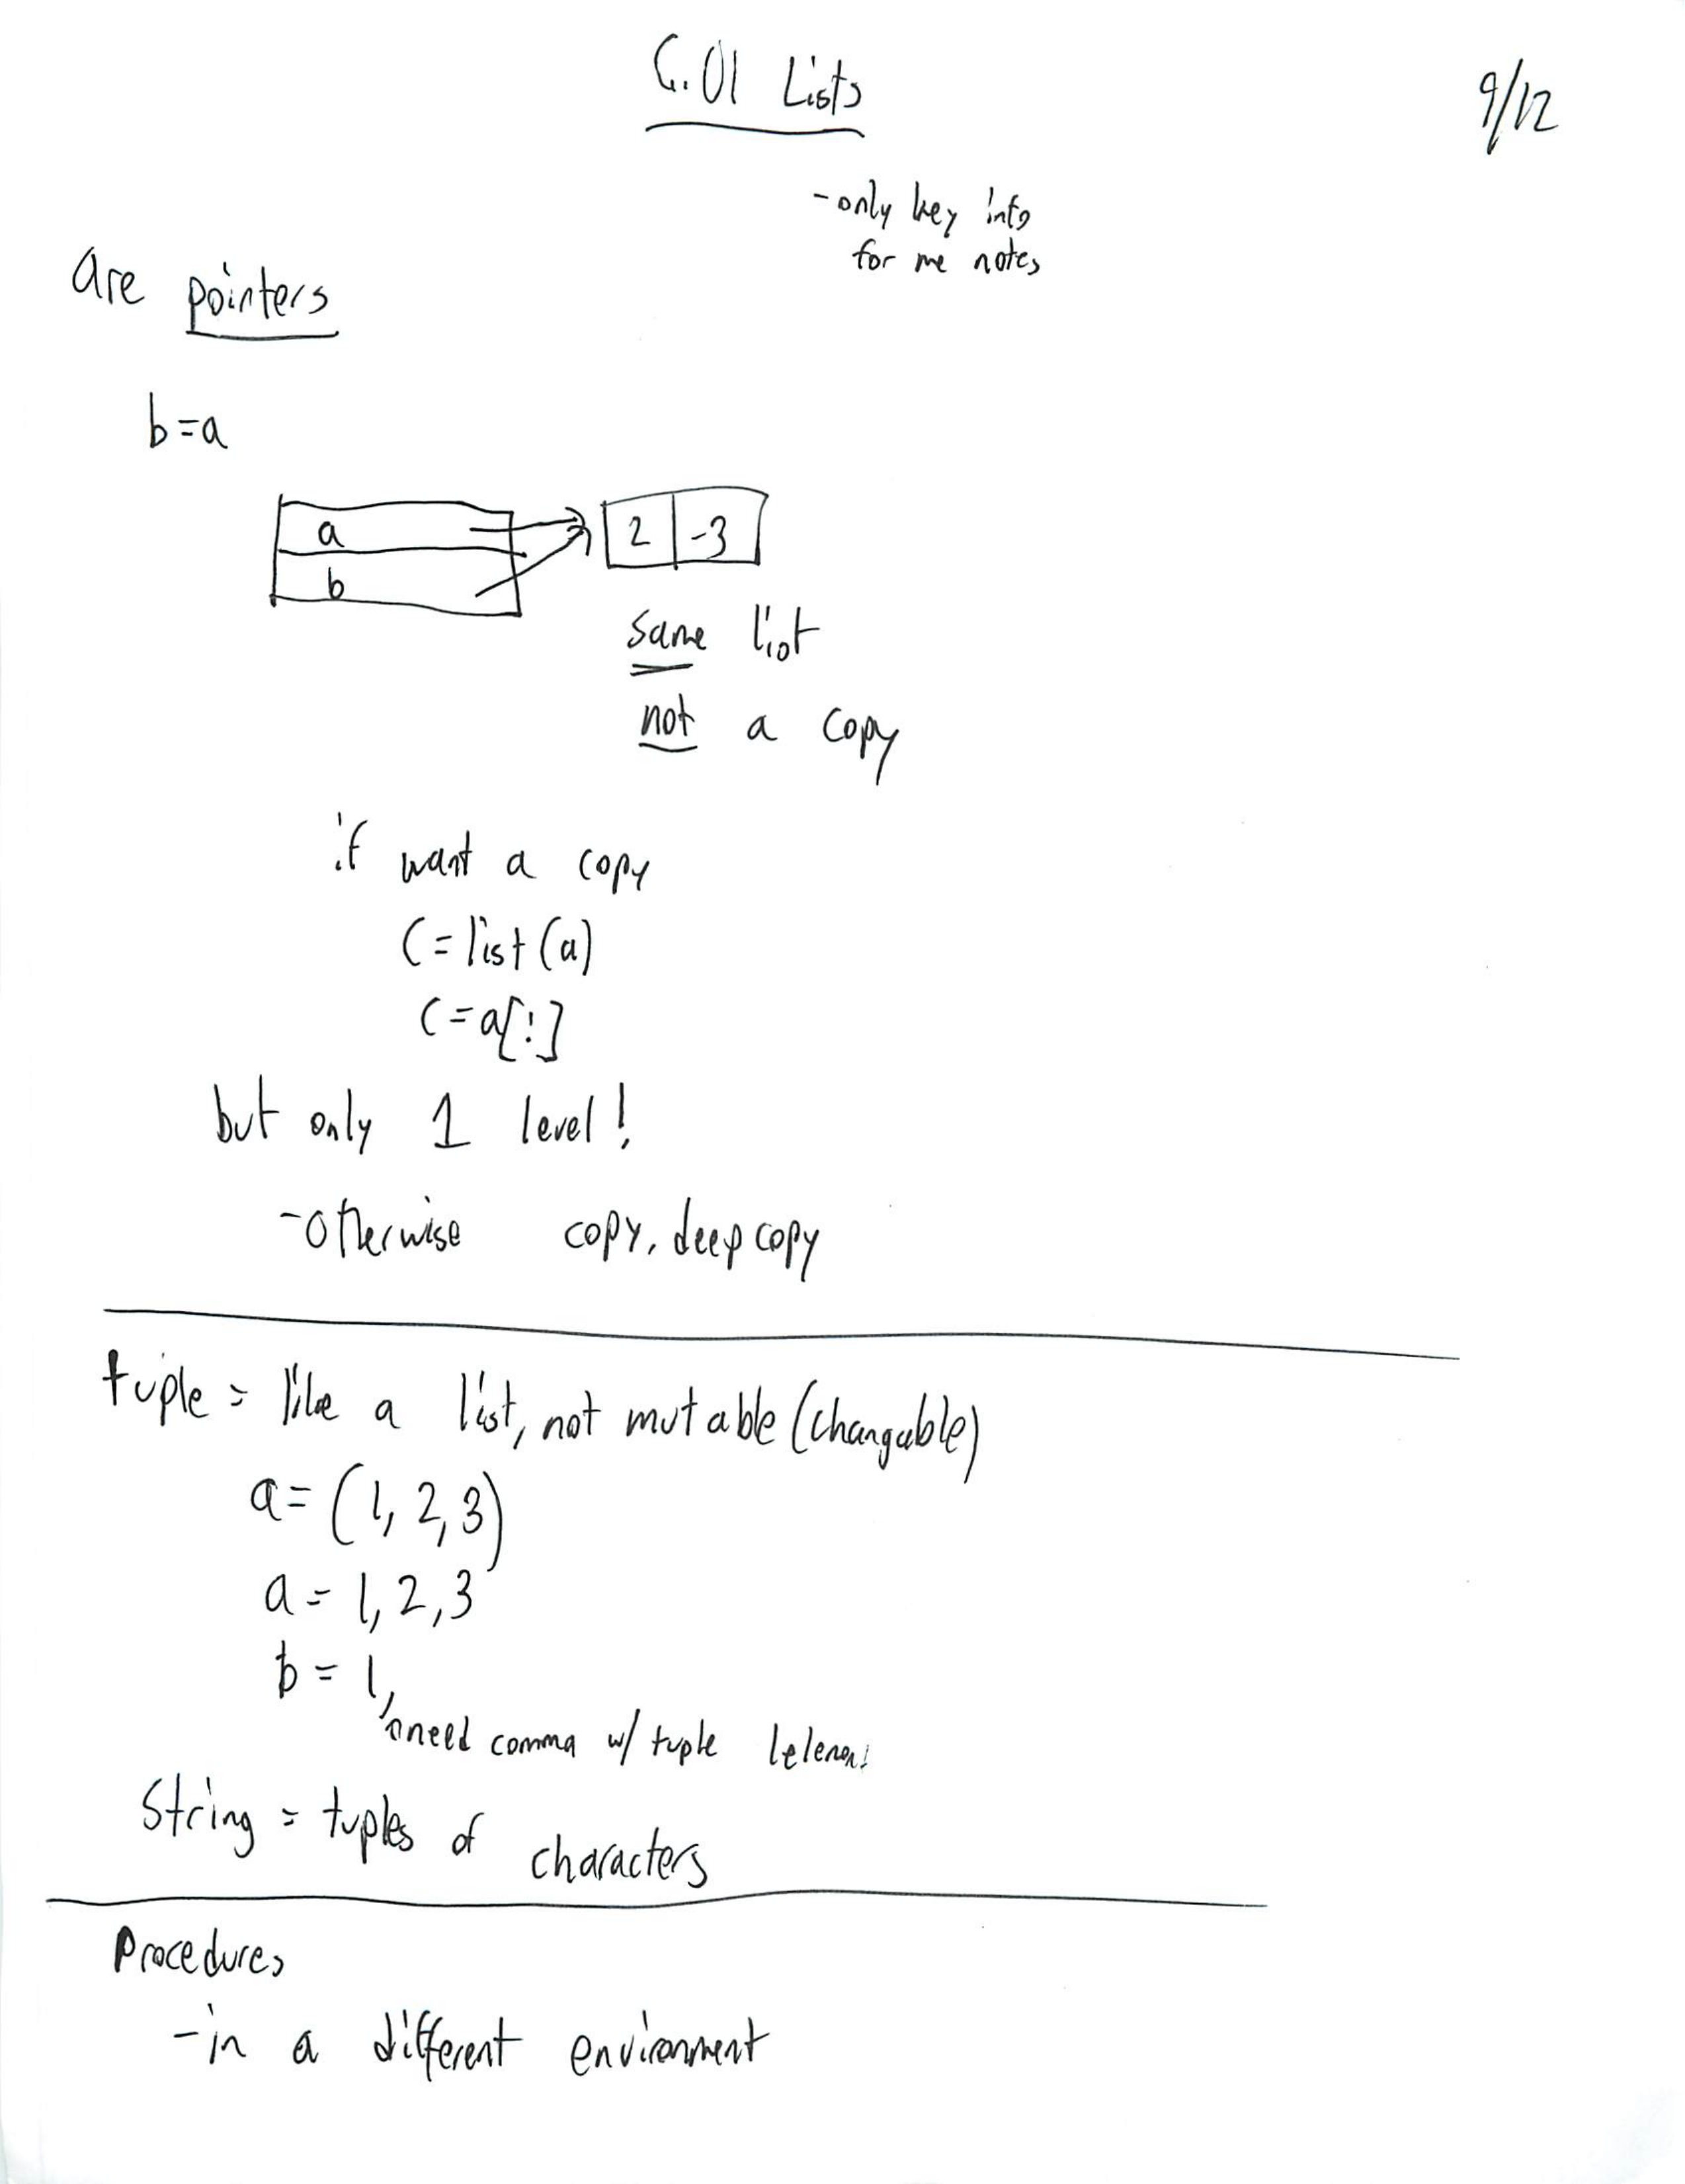 6.01 Lists
9/12
-only key info
for me notes
are pointers
b=a
a
b
2 -3
same list
not a copy
if want a copy
c=list(a)
c=a[:]
but only 1 level!
-otherwise copy.deepcopy
tuple = like a list, not mutable (changable)
a=(1, 2, 3)
a=1, 2, 3
b=1,
need comma w/ tuple 1 element
String = tuples of characters
Procedures
-in a different environment